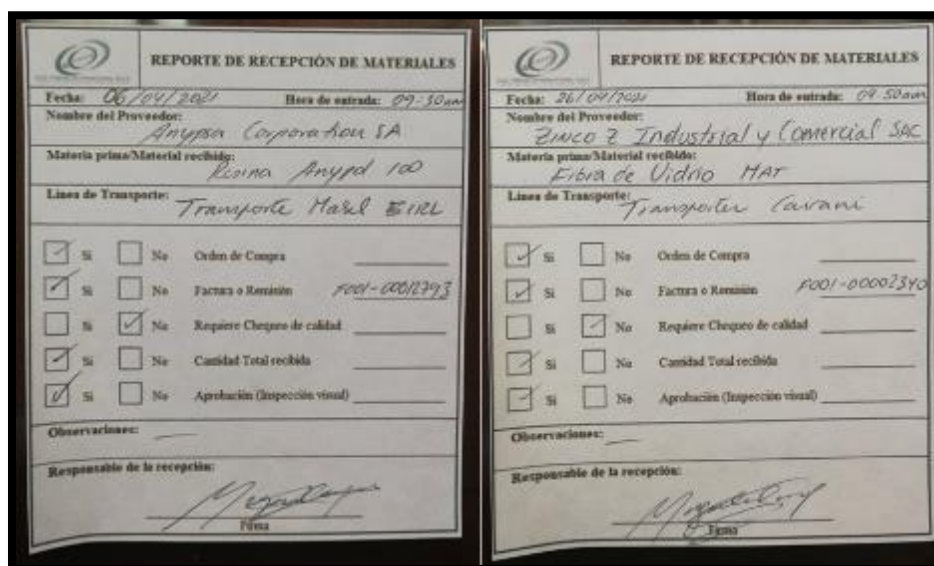 REPORTE DE RECEPCIÓN DE MATERIALES
Fecha: 06/04/2021 Hora de entrada: 09:30am
Nombre del Proveedor:
Anypsa Corporation SA
Materia prima/Material recibido:
Resina Anypol 100
Linea de Transporte:
Transporte Masel EIRL
Si No Orden de Compra
Si No Factura o Remisión F001-00012793
Si No Requiere Chequeo de calidad
Si No Cantidad Total recibida
Si No Aprobación (Inspección visual)
Observaciones:
Responsable de la recepción:
Firma
REPORTE DE RECEPCIÓN DE MATERIALES
Fecha: 26/04/2021 Hora de entrada: 09:50am
Nombre del Proveedor:
ZINCO Z Industrial y Comercial SAC
Materia prima/Material recibido:
Fibra de Vidrio MAT
Linea de Transporte:
Transportes Cavani
Si No Orden de Compra
Si No Factura o Remisión F001-00002340
Si No Requiere Chequeo de calidad
Si No Cantidad Total recibida
Si No Aprobación (Inspección visual)
Observaciones:
Responsable de la recepción:
Firma